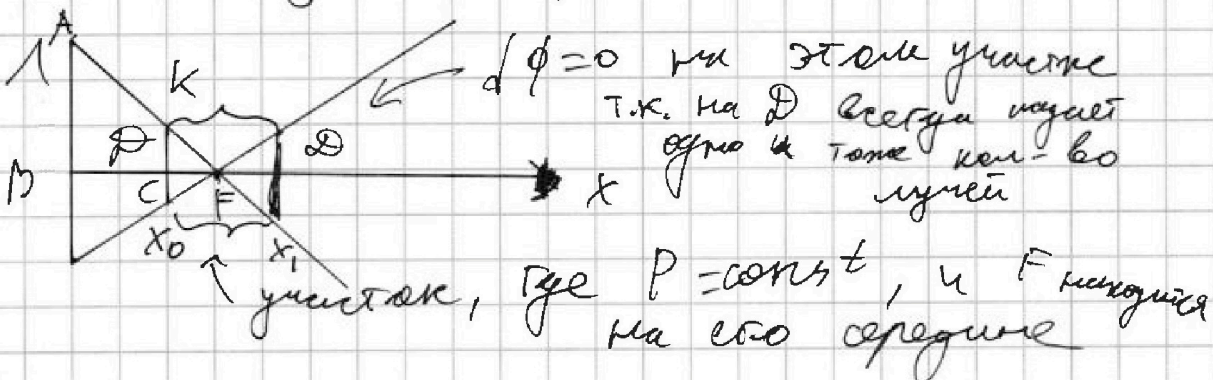 A
K
dϕ=0 на этом участке
т.к. на D всегда падает
одно и тоже кол-во
лучей
D
D
B
C
F
X
x₀
x₁
участок, где P=const, и F находится
на его середине